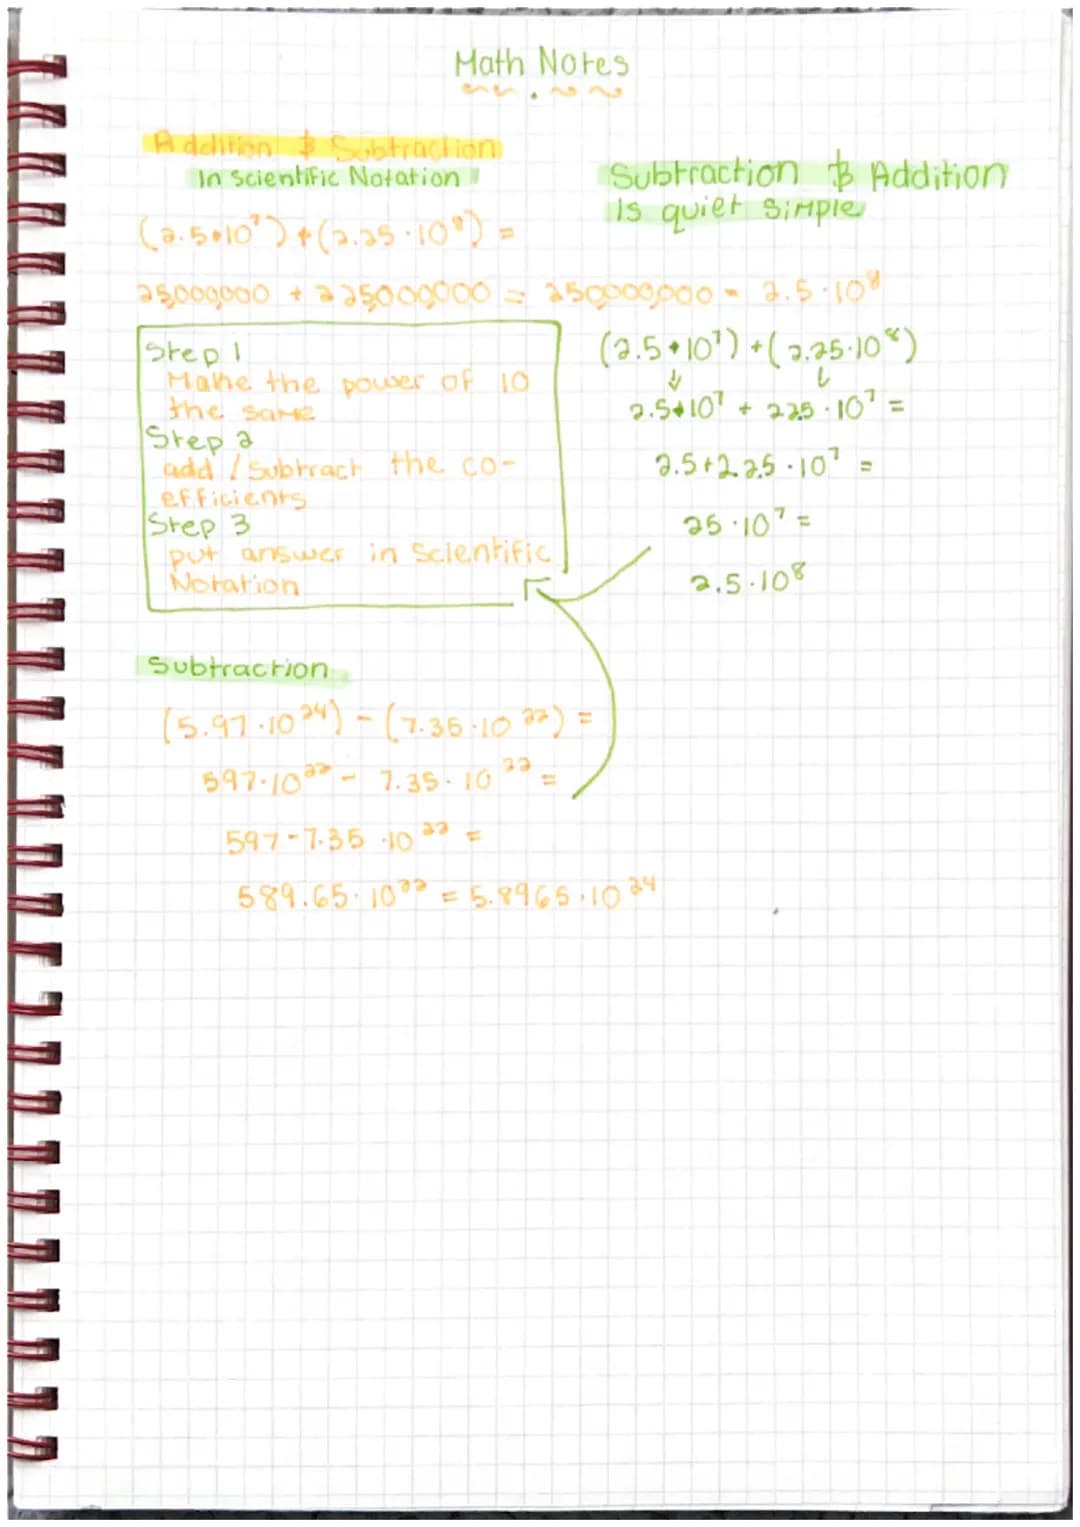 Math Notes
Addition & Subtraction
In Scientific Notation
(2.5•10⁷) + (2.25·10⁸) =
25,000,000 + 225,000,000 = 250,000,000 = 2.5·10⁸
Step 1
Make the power of 10
the same
Step 2
add / Subtract the co-
efficients
Step 3
put answer in Scientific
Notation
Subtraction & Addition
Is quiet simple
(2.5•10⁷) + (2.25·10⁸)
2.5•10⁷ + 22.5·10⁷ =
2.5+2.25·10⁷ =
25·10⁷ =
2.5·10⁸
Subtraction
(5.97·10²⁴) - (7.35·10²²) =
597·10²² - 7.35·10²² =
597-7.35·10²² =
589.65·10²² = 5.8965·10²⁴